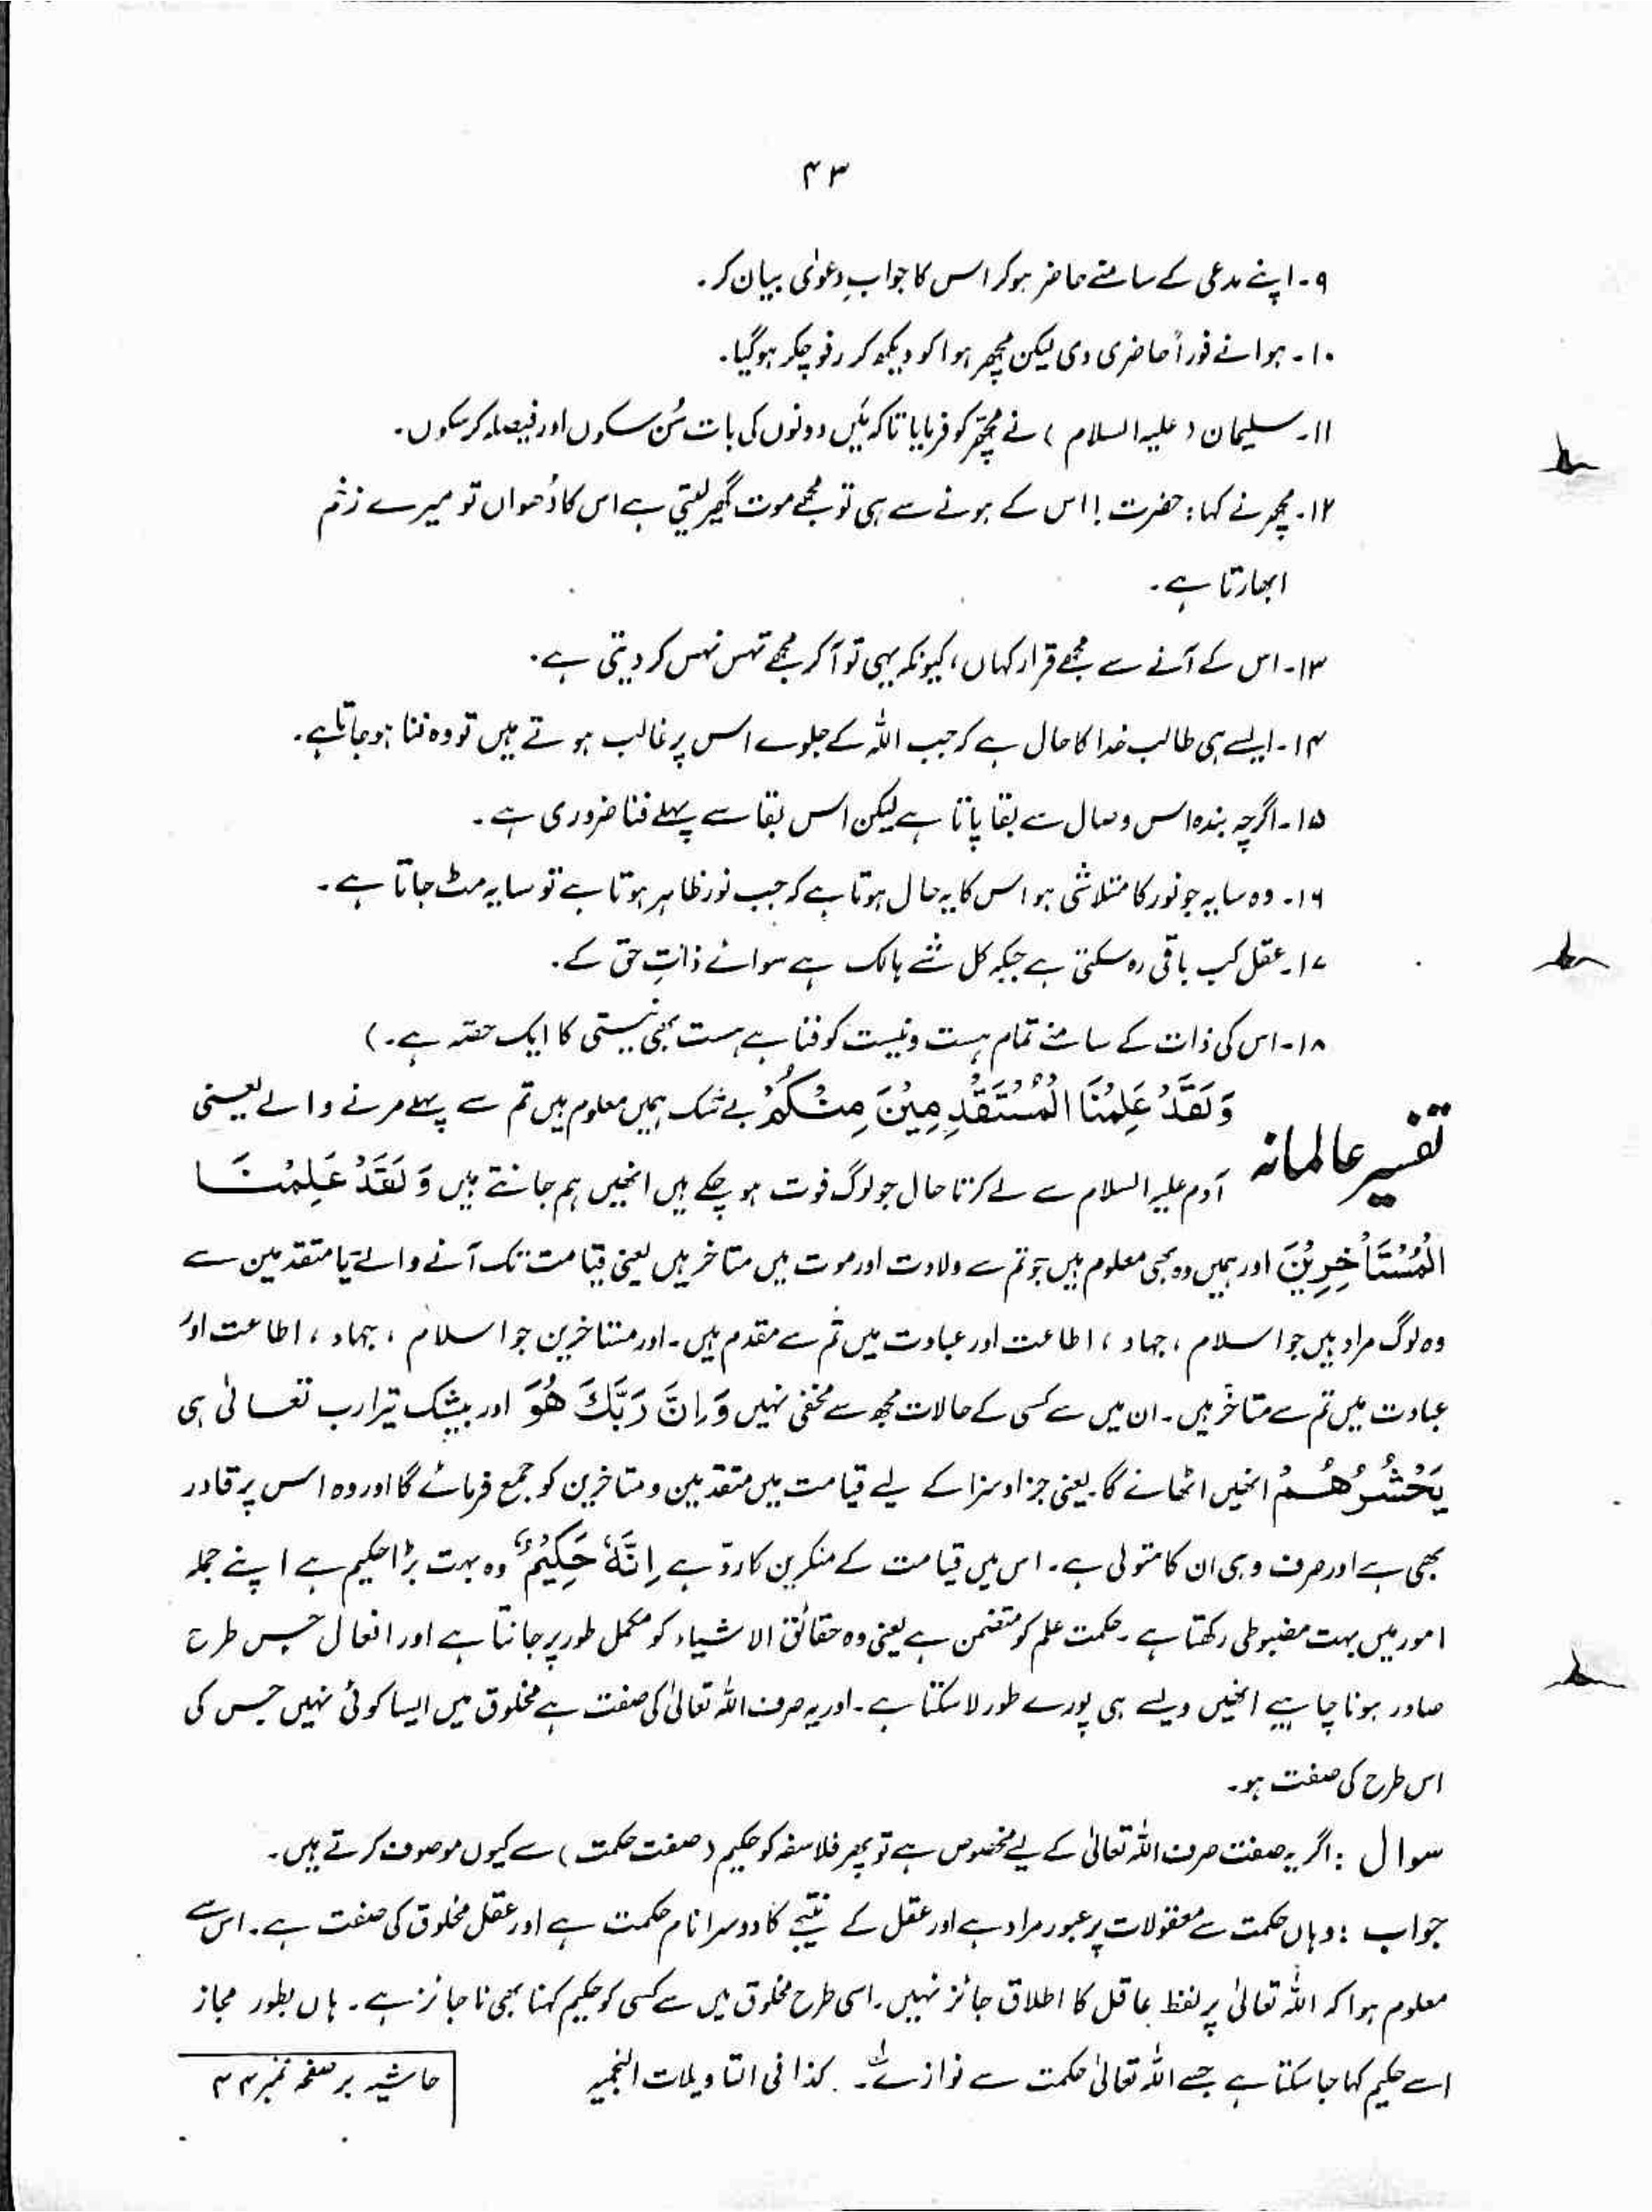 ۴۳
۹۔ اپنے مدعی کے سامنے حاضر ہو کر اس کا جوابِ دعوٰی بیان کر۔
۱۰۔ ہوا نے فوراً حاضری دی لیکن مچھر ہوا کو دیکھ کر رفو چکر ہو گیا۔
۱۱۔ سلیمان (علیہ السلام) نے مچھّر کو فرمایا تاکہ مَیں دونوں کی بات سُن سکوں اور فیصلہ کر سکوں۔
۱۲۔ مچھر نے کہا: حضرت! اس کے ہونے سے ہی تو مجھے موت گھیر لیتی ہے اس کا دُھواں تو میرے زخم
ابھارتا ہے۔
۱۳۔ اس کے آنے سے مجھے قرار کہاں، کیونکہ یہی تو آ کر مجھے تہس نہس کر دیتی ہے۔
۱۴۔ ایسے ہی طالب خدا کا حال ہے کہ جب اللہ کے جلوے اس پر غالب ہوتے ہیں تو وہ فنا ہو جاتا ہے۔
۱۵۔ اگرچہ بندہ اس وصال سے بقا پاتا ہے لیکن اس بقا سے پہلے فنا ضروری ہے۔
۱۶۔ وہ سایہ جو نور کا متلاشی ہو اس کا یہ حال ہوتا ہے کہ جب نور ظاہر ہوتا ہے تو سایہ مٹ جاتا ہے۔
۱۷۔ عقل کب باقی رہ سکتی ہے جبکہ کل شے ہالک ہے سوائے ذاتِ حق کے۔
۱۸۔ اس کی ذات کے سامنے تمام ہست و نیست کو فنا ہے ہست بھی نیستی کا ایک حصّہ ہے۔)
تفسیر عالمانہ وَلَقَدْ عَلِمْنَا الْمُسْتَقْدِمِيْنَ مِنْكُمْ بے شک ہمیں معلوم ہیں تم سے پہلے مرنے والے یعنی
آدم علیہ السلام سے لے کر تا حال جو لوگ فوت ہو چکے ہیں انھیں ہم جانتے ہیں وَلَقَدْ عَلِمْنَا
الْمُسْتَأْخِرِيْنَ اور ہمیں وہ بھی معلوم ہیں جو تم سے ولادت اور موت میں متاخر ہیں یعنی قیامت تک آنے والے یا متقدمین سے
وہ لوگ مراد ہیں جو اسلام، جہاد، اطاعت اور عبادت میں تم سے مقدم ہیں۔ اور متاخرین جو اسلام، جہاد، اطاعت اور
عبادت میں تم سے متاخّر ہیں۔ ان میں سے کسی کے حالات مجھ سے مخفی نہیں وَاِنَّ رَبَّكَ هُوَ اور بیشک تیرا رب تعالیٰ ہی
يَحْشُرُهُمْ انھیں اٹھانے گا۔ یعنی جزا و سزا کے لیے قیامت میں متقدمین و متاخرین کو جمع فرمائے گا اور وہ اس پر قادر
بھی ہے اور صرف وہی ان کا متولی ہے۔ اس میں قیامت کے منکرین کا ردّ ہے اِنَّهٗ حَكِيْمٌ وہ بہت بڑا حکیم ہے اپنے جملہ
امور میں بہت مضبوطی رکھتا ہے۔ حکمت علم کو متضمن ہے یعنی وہ حقائق الاشیاء کو مکمل طور پر جانتا ہے اور افعال جس طرح
صادر ہونا چاہیے انھیں ویسے ہی پورے طور لا سکتا ہے۔ اور یہ صرف اللہ تعالیٰ کی صفت ہے مخلوق میں ایسا کوئی نہیں جس کی
اس طرح کی صفت ہو۔
سوال: اگر یہ صفت صرف اللہ تعالیٰ کے لیے مخصوص ہے تو پھر فلاسفہ کو حکیم (صفت حکمت) سے کیوں موصوف کرتے ہیں۔
جواب: وہاں حکمت سے معقولات پر عبور مراد ہے اور عقل کے نتیجے کا دوسرا نام حکمت ہے اور عقل مخلوق کی صفت ہے۔ اس سے
معلوم ہوا کہ اللہ تعالیٰ پر لفظ عاقل کا اطلاق جائز نہیں۔ اسی طرح مخلوق میں سے کسی کو حکیم کہنا بھی ناجائز ہے۔ ہاں بطور مجاز
اسے حکیم کہا جا سکتا ہے جسے اللہ تعالیٰ حکمت سے نوازے۔ کذا فی التاویلات النجمیہ
حاشیہ بر صفحہ نمبر ۴۴